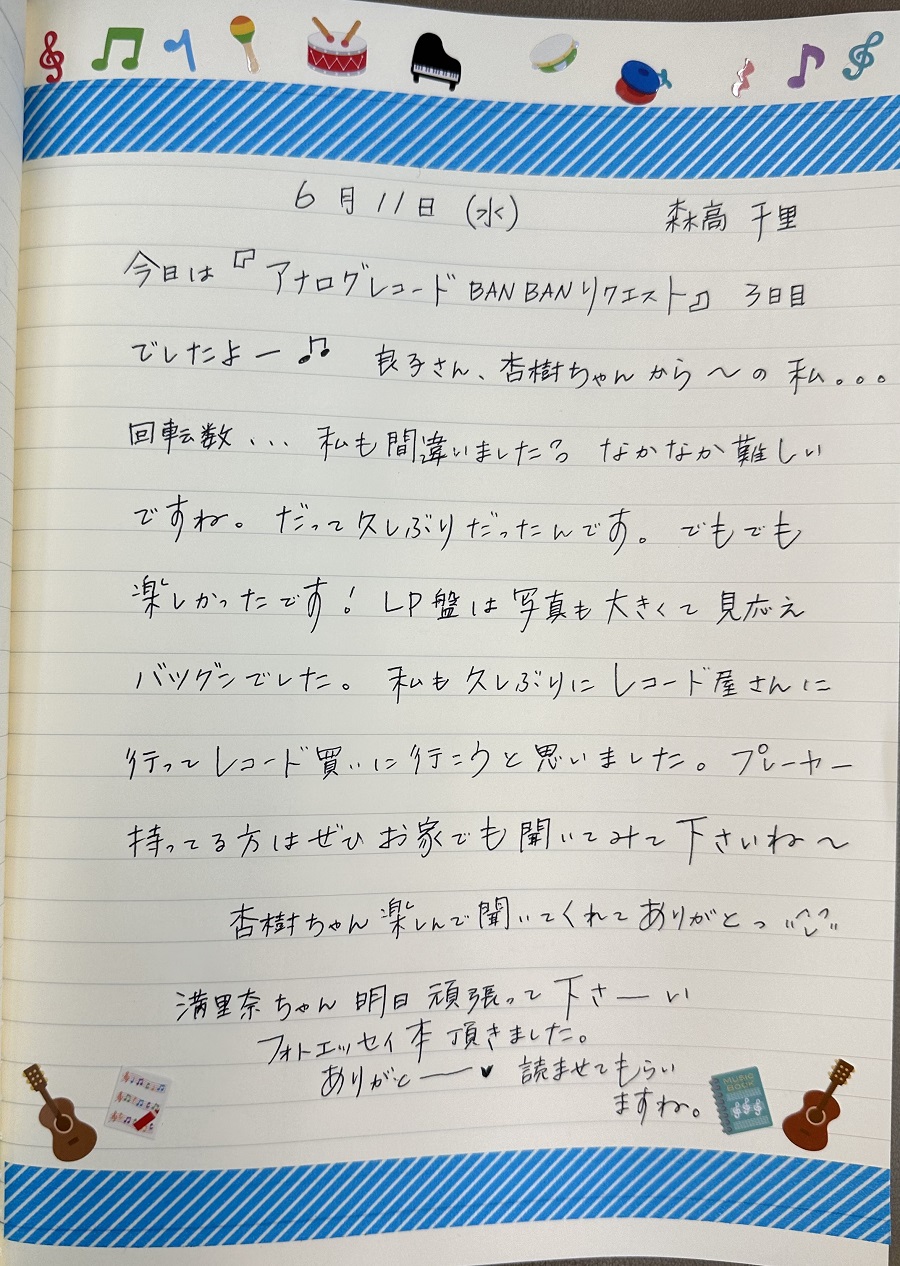 6月11日(水) 森高 千里
今日は『アナログレコード BAN BAN リクエスト』 3日目
でしたよー♫ 良子さん、杏樹ちゃんから〜の私。。。
回転数... 私も間違いましたろ なかなか難しい
ですね。だって久しぶりだったんです。でもでも
楽しかったです! LP盤は写真も大きくて見応え
バツグンでした。 私も久しぶりにレコード屋さんに
行ってレコード買いに行こうと思いました。プレーヤー
持ってる方はぜひお家でも聞いてみて下さいね〜
杏樹ちゃん楽しんで聞いてくれてありがとっ
満里奈ちゃん明日頑張って下さーい
フォトエッセイ本頂きました。
ありがとー♥ 読ませてもらい
ますね。
MUSIC BOOK